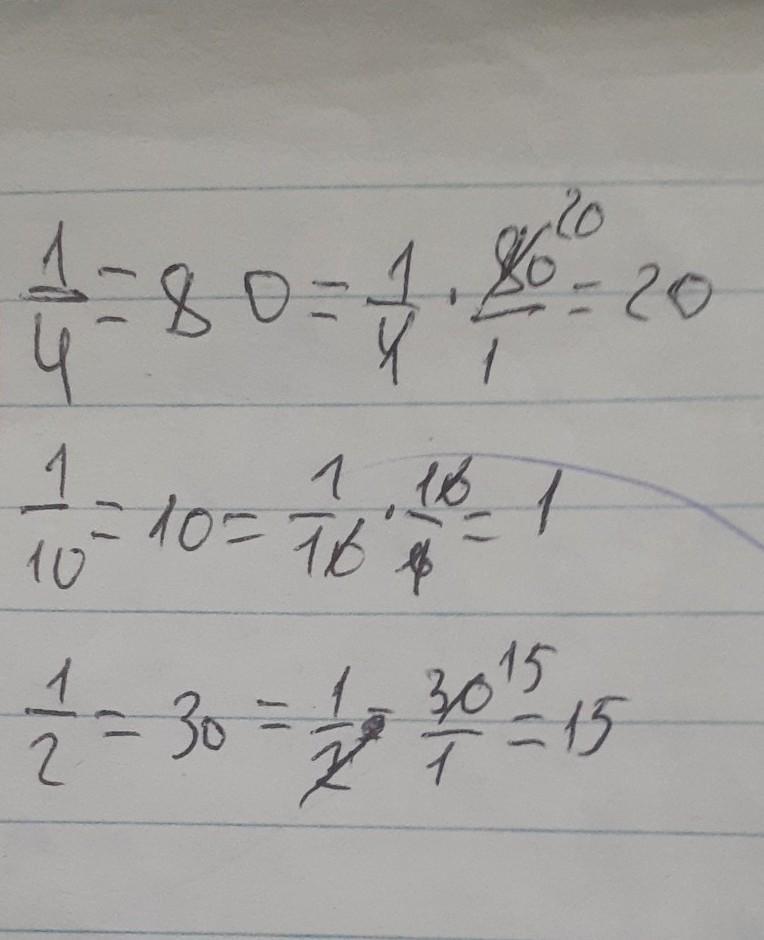 1/4 = 80 = 1/4 · 80/1 20 = 20
1/10 = 10 = 1/10 · 10/1 = 1
1/2 = 30 = 1/2 · 30/1 15 = 15